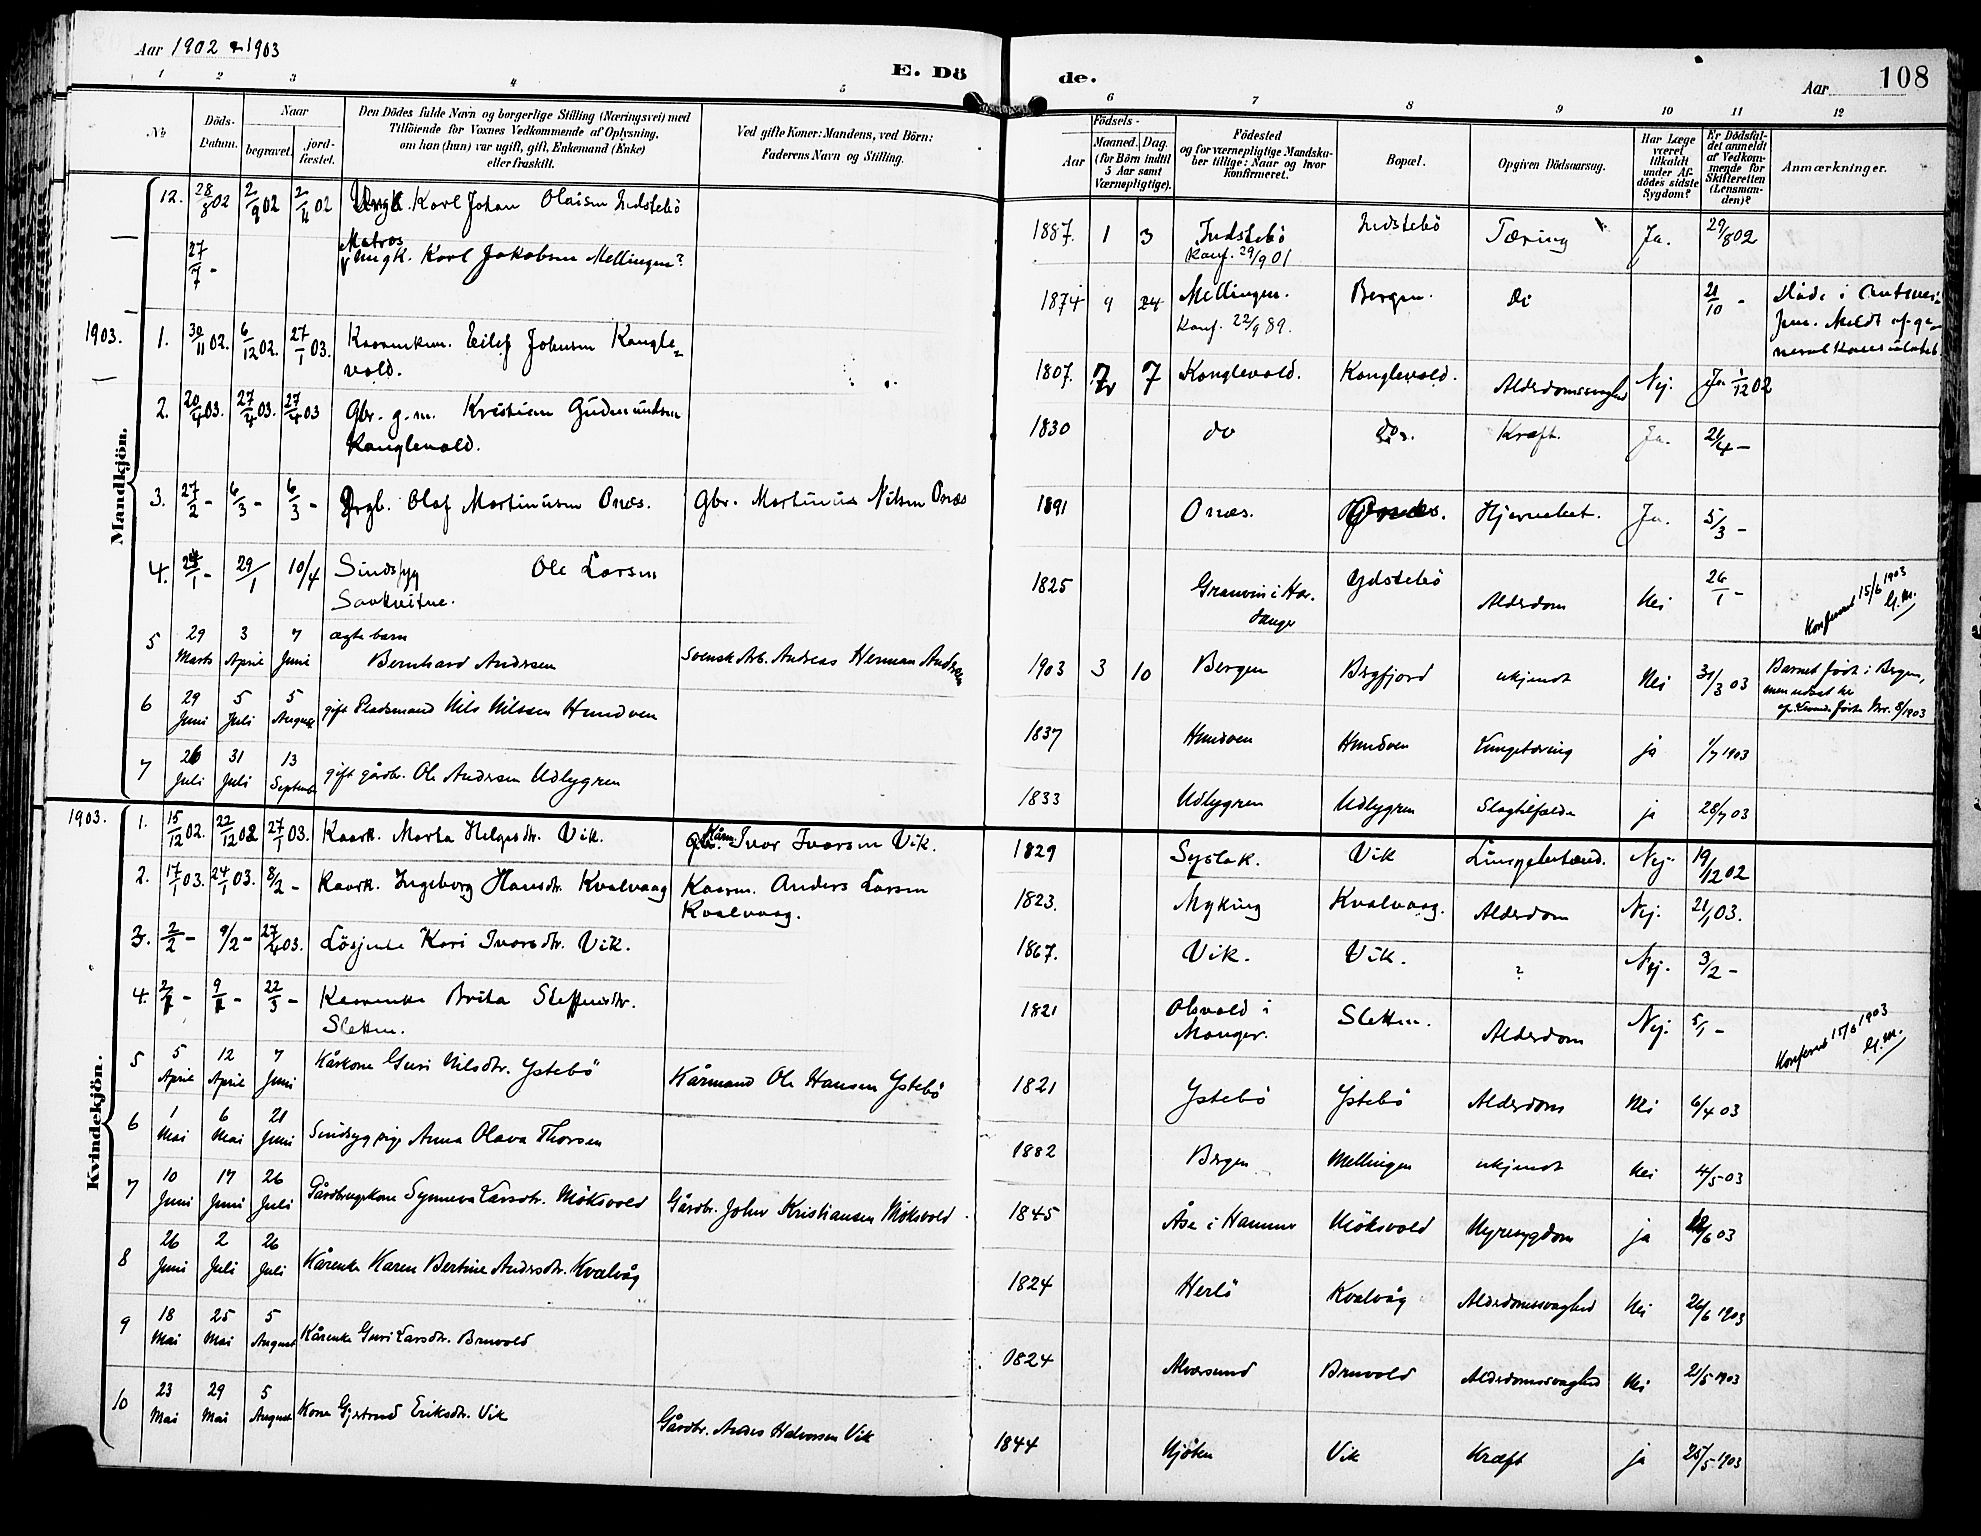 Aar 1902 & 1903
E. Dö
de.
Aar 108
1 2 3 4 5 6 7 8 9 10 11 12
No
Döds-Datum.
Naar
begravet.
jord-fæstet.
Den Dödes fulde Navn og borgerlige Stilling (Næringsvei) med
Tilföiende for Voxnes Vedkommende af Oplysning,
om han (hun) var ugift, gift, Enkemand (Enke)
eller fraskilt.
Ved gifte Koner: Mandens, ved Börn:
Faderens Navn og Stilling.
Födsels-
Aar
Maaned. Dag.
(for Börn indtil
5 Aar samt
Værnepligtige).
Födested
og for værnepligtige Mandska-
ber tillige: Naar og hvor
konfirmeret.
Bopæl.
Opgiven Dödsaarsag.
Har Læge
været
tilkaldt
under Af-
dödes sidste
Sygdom?
Er Dödsfal-
det anmeldt
af Vedkom-
mende for
Skifteretten
(Lensman-
den)?
Anmærkninger.
Mandkjön.
12. 28/8 02 2/9 02 2/11 02 Ungk. Karl Johan Olaisen Indstebö 1887. 1 3 Indstebö Konf. 29/9 01 Indstebö Tæring Ja. 29/8 02
27/7 - Matros Ungk. Karl Jakobsen Mellingen? 1874 9 24 Mellingen. Konf. 22/9 89. Bergen. Do 21/10 -
1903. 1. 30/11 02. 6/12 02. 27/1 03. Kaarenkem. Eilef Johnsen Kongle=
vold. 1807. 7 Konglevold. Konglevold. Alderdomssvaghed Nej. Ja 1/12 02
2. 20/4 03. 27/4 03. 27/4 03 Gbr. g.m. Kristian Gudmundsen
Konglevold. 1830 do do. Kræft. Ja. 21/4 -
3. 27/2 - 6/3 - 6/3 - Olaf Martinusen Onæs. Gbr. Martinus Nilsen Onæs 1891 Onæs. Onæs. Ja. 5/3 -
4. 24/1 - 29/1 10/4 Sindssyg Ole Larsen
1825 Granvin i Har-
danger Ydstebö Alderdom Nei 26/1 - Konfereret 15/6 1903
5 29 Marts 3 April 7 Juni ægte barn
Bernhard Andersen Svensk Arb. Andreas Herman Andersen 1903 3 10 Bergen Bøgfjord ukjendt Nei 31/3 03 Barnet født i Bergen,
6 29 Juni 5 Juli 5 August gift Pladsmand Nils Nilssen Hundven 1837 Hundven Hundven Lungetæring ja 1/7 1903
7 26 Juli 31 Juli 13 Septemb. gift gårdbr. Ole Andersen Udlygren 1833 Udlygren Udlygren Slagtilfælde ja 28/7 03
Kvindekjön.
1903. 1. 15/12 02. 22/12 02 27/1 03. Kaark. Marta Helgesdtr. Vik. Kårm. Ivar Ivarsen Vik. 1829 Syslak. Vik Lungebetænd. Nej. 19/12 02
2. 17/1 03. 24/1 03. 8/2 - Kaark. Ingeborg Hansdtr. Kvalvaag Kaarm. Anders Larsen
Kvalvaag. 1823. Myking Kvalvaag. Alderdom Nej. 21/1 03.
3. 2/2 - 9/2 - 27/4 03. Lösjente Kari Ivarsdtr. Vik. 1867. Vik. Vik. ? Nej. 3/2 -
4. 2/1 - 9/1 - 22/3 - Kaarenke Brita Steffensdtr.
Sletten. 1821 Olsvold i
Manger. Sletten. Alderdom Nej. 5/1 - Konfereret 15/6 1903
5 5 April 12 April 7 Juni Kårkone Guri Nilsdtr. Ystebö Kårmand Ole Hansen Ystebö 1821 Ystebö Ystebö Alderdom Nei 6/4 03
6 1 Mai 6 Mai 21 Juni Sindsyg pige Anna Olava Thorsen 1882 Bergen Mellingen ukjendt Nei 4/5-03
7 10 Juni 17 Juni 26 Juli Gårdbrugerkone Synneva Larsdtr. Møksvold Gårdbr. John Kristiansen Møksvold 1845 Åse i Hammer Møksvold Nyresygdom ja 12/6 03
8 26 Juni 2 Juli 26 Juli Kårenke Karen Bertine Andersdtr. Kvalvåg 1824 Herlö Kvalvåg Alderdomssvaghed Nei 26/6 1903
9 18 Mai 25 Mai 5 August Kårenke Guri Larsdtr. Bruvold 1824 Alversund Bruvold Alderdomssvaghed Nei 21/5 1903
10 23 Mai 29 Mai 5 August Kone Gjertrud Eriksdtr. Vik Gårdbr. Anders Halvorsen Vik 1844 Njöten Vik Kræft ja 25/5 1903